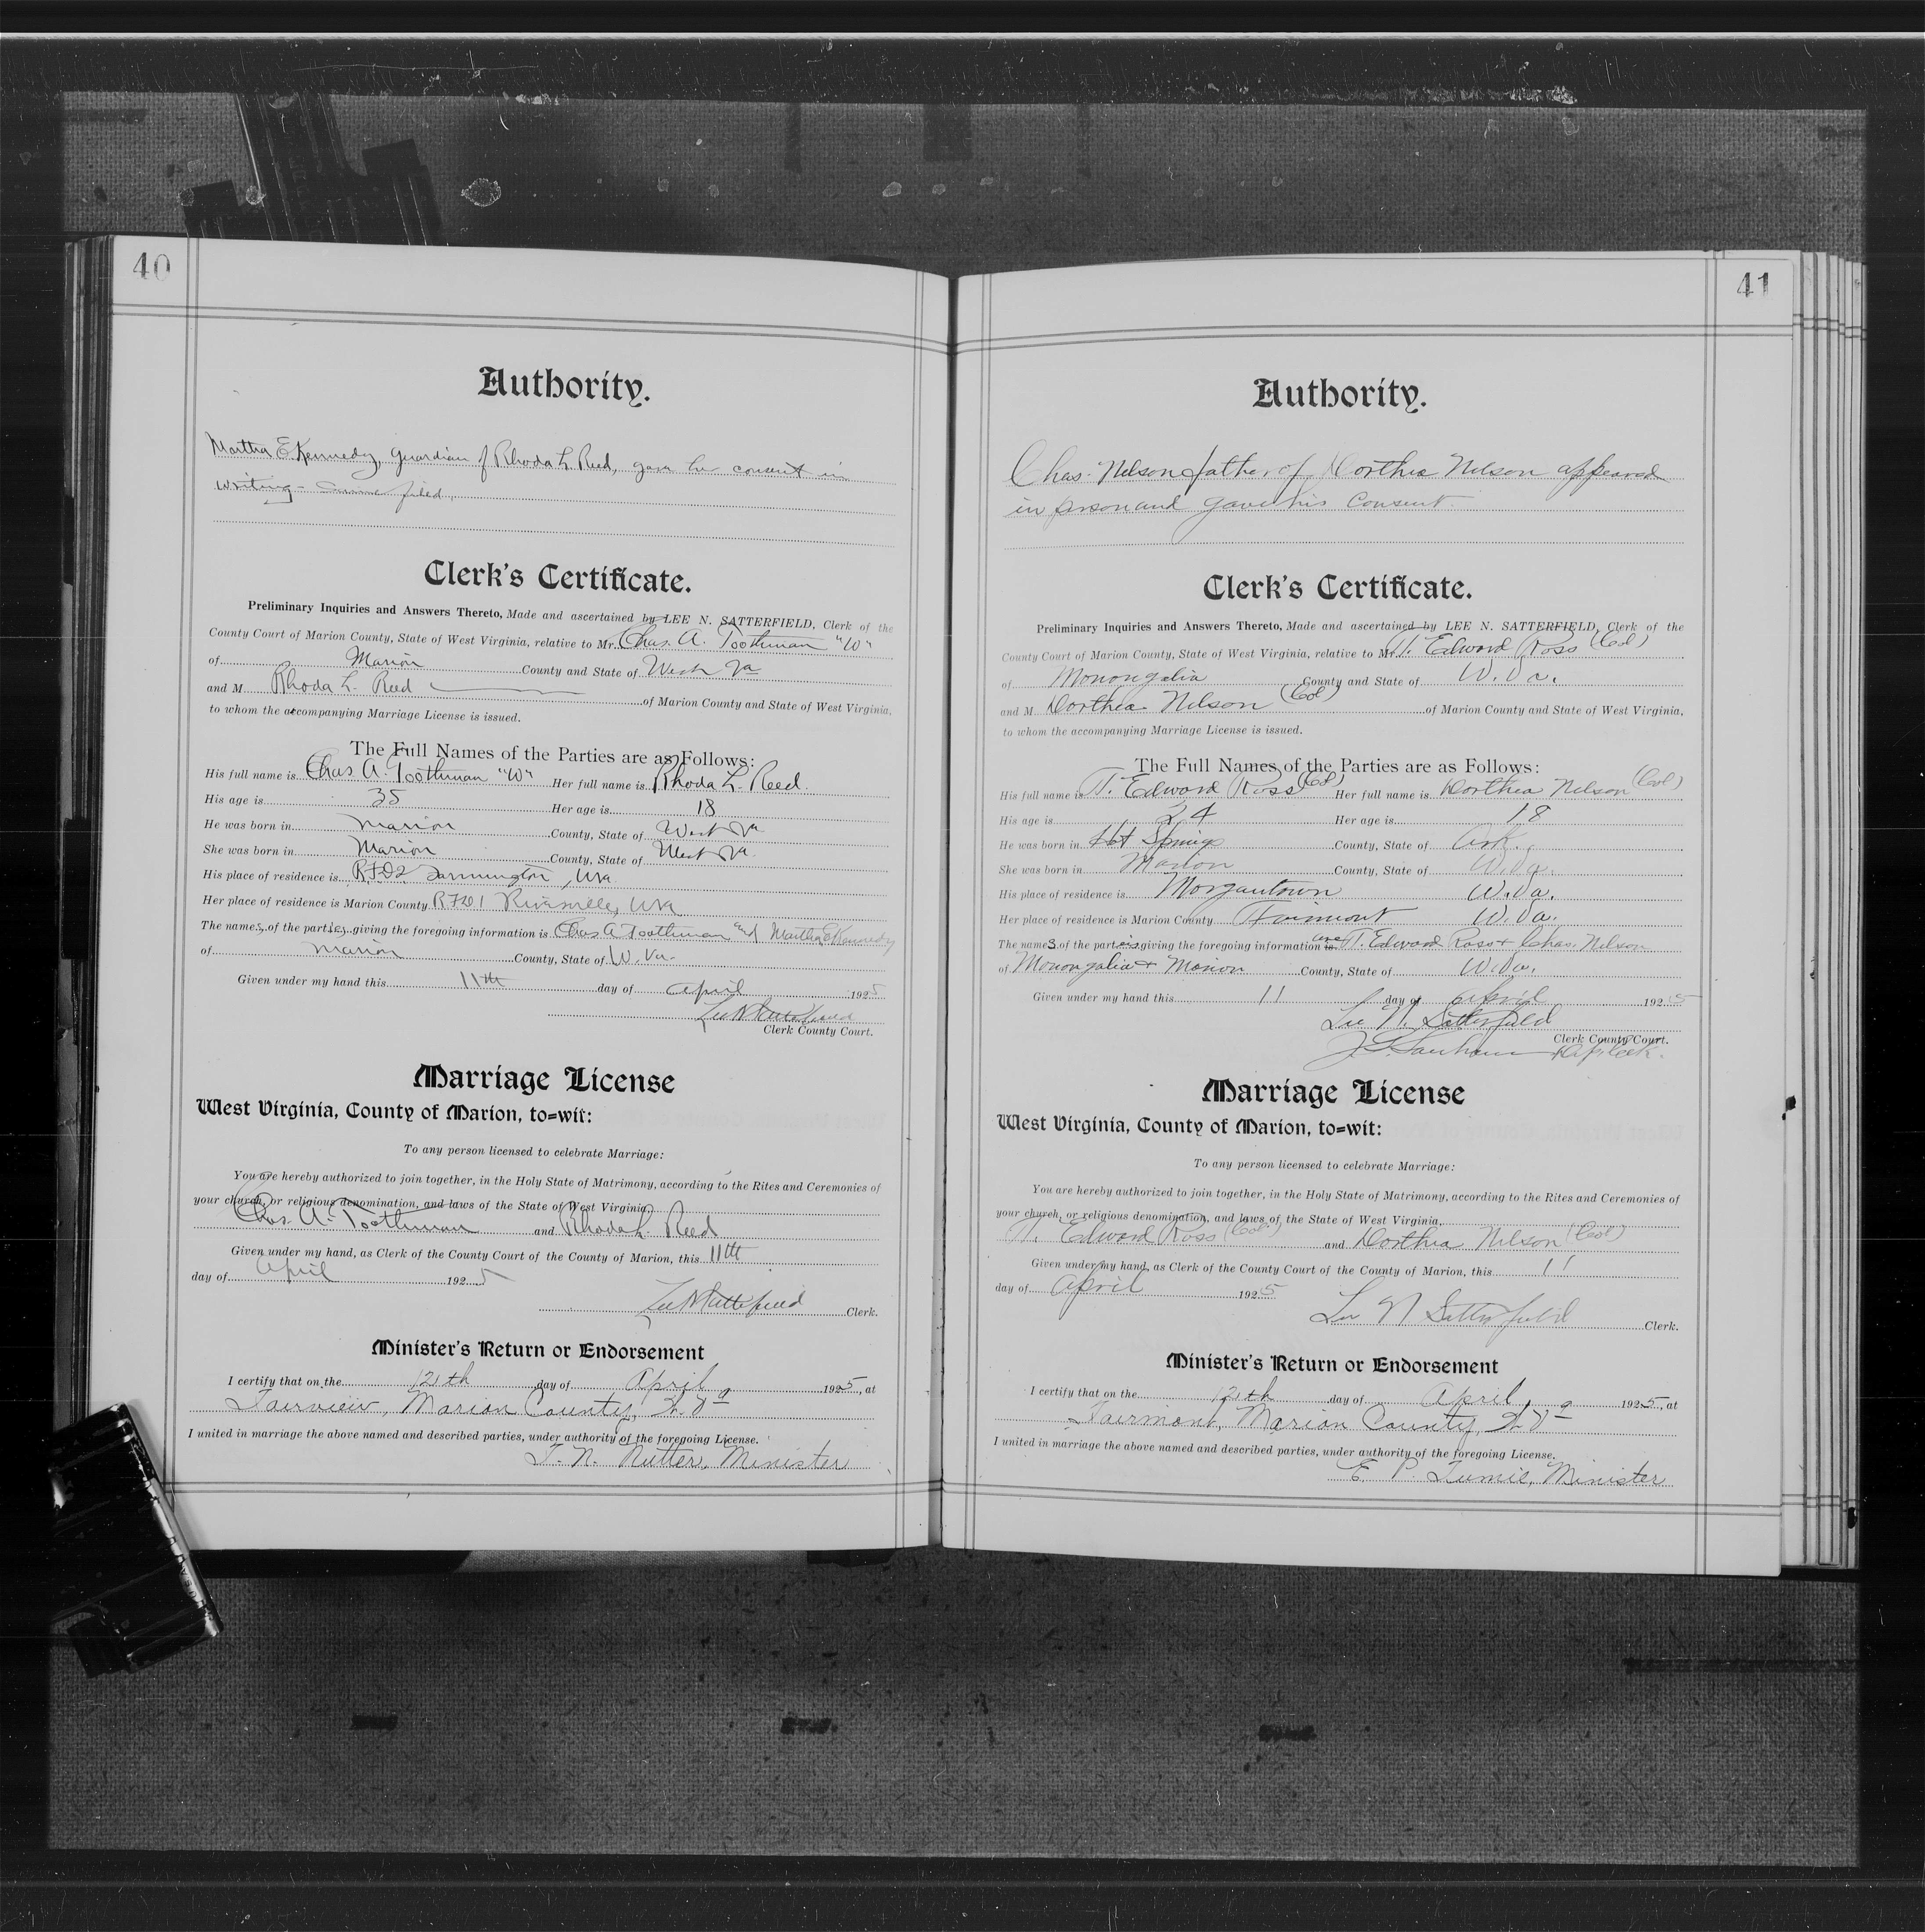 40
Authority.
Martha E Kennedy, guardian of Rhoda L. Reed, gave her consent in
writing - same filed.
Clerk's Certificate.
Preliminary Inquiries and Answers Thereto, Made and ascertained by LEE N. SATTERFIELD, Clerk of the
County Court of Marion County, State of West Virginia, relative to Mr. Chas. A. Toothman "W"
of Marion County and State of West Va
and M Rhoda L. Reed of Marion County and State of West Virginia,
to whom the accompanying Marriage License is issued.
The Full Names of the Parties are as Follows:
His full name is Chas A. Toothman "W" Her full name is Rhoda L. Reed.
His age is 35 Her age is 18
He was born in Marion County, State of West Va
She was born in Marion County, State of West Va.
His place of residence is RFD2 Farmington, WVa
Her place of residence is Marion County RFD1 Rivesville, WVa
The names of the parties giving the foregoing information is Chas A Toothman and Martha E Kennedy
of Marion County, State of W.Va.
Given under my hand this 11th day of April 1925
Lee N Satterfield
Clerk County Court.
Marriage License
West Virginia, County of Marion, to=wit:
To any person licensed to celebrate Marriage:
You are hereby authorized to join together, in the Holy State of Matrimony, according to the Rites and Ceremonies of
your church, or religious denomination, and laws of the State of West Virginia,
Chas. A. Toothman and Rhoda L. Reed
Given under my hand, as Clerk of the County Court of the County of Marion, this 11th
day of April 1925
Lee N Satterfield Clerk.
Minister's Return or Endorsement
I certify that on the 12th day of April 1925, at
Fairview, Marion County, W. Va
I united in marriage the above named and described parties, under authority of the foregoing License.
T. N. Nutter, Minister
41
Authority.
Chas. Nelson father of Dorthea Nelson appeared
in person and gave his consent.
Clerk's Certificate.
Preliminary Inquiries and Answers Thereto, Made and ascertained by LEE N. SATTERFIELD, Clerk of the
County Court of Marion County, State of West Virginia, relative to Mr. T. Edward Ross (Col)
of Monongalia County and State of W. Va.
and M Dorthea Nelson (Col) of Marion County and State of West Virginia,
to whom the accompanying Marriage License is issued.
The Full Names of the Parties are as Follows:
His full name is T. Edward Ross (Col) Her full name is Dorthea Nelson (Col)
His age is 24 Her age is 18
He was born in Hot Springs County, State of Ark.
She was born in Marion County, State of W. Va.
His place of residence is Morgantown W. Va.
Her place of residence is Marion County Fairmont W. Va.
The names of the parteis giving the foregoing information is are T. Edward Ross + Chas. Nelson
of Monongalia + Marion County, State of W. Va.
Given under my hand this 11 day of April 1925
Lee N. Satterfield
Clerk County Court.
Marriage License
West Virginia, County of Marion, to=wit:
To any person licensed to celebrate Marriage:
You are hereby authorized to join together, in the Holy State of Matrimony, according to the Rites and Ceremonies of
your church, or religious denomination, and laws of the State of West Virginia,
T. Edward Ross (Col) and Dorthea Nelson (Col)
Given under my hand, as Clerk of the County Court of the County of Marion, this 11
day of April 1925
Lee N Satterfield Clerk.
Minister's Return or Endorsement
I certify that on the 12th day of April 1925, at
Fairmont, Marion County, W Va
I united in marriage the above named and described parties, under authority of the foregoing License.
E. P. Minister